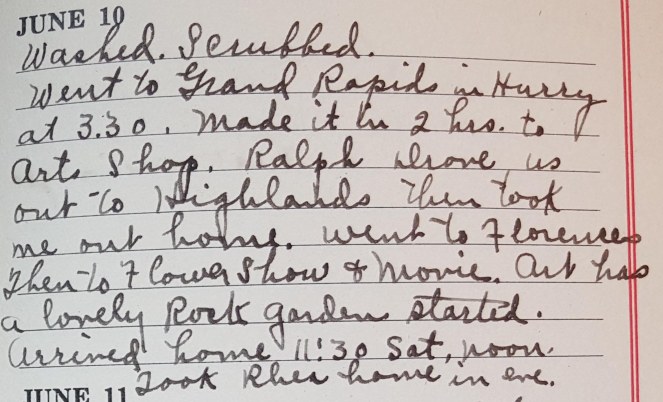 JUNE 10
Washed. Scrubbed.
Went to Grand Rapids in Hurry
at 3:30. Made it in 2 hrs. to
Arts Shop. Ralph drove us
out to Highlands then took
me out home. Went to Florences
Then to Flower Show & Movie. Art has
a lovely Rock garden started.
Arrived home 11:30 Sat, noon.
JUNE 11 Took Rhea home in eve.